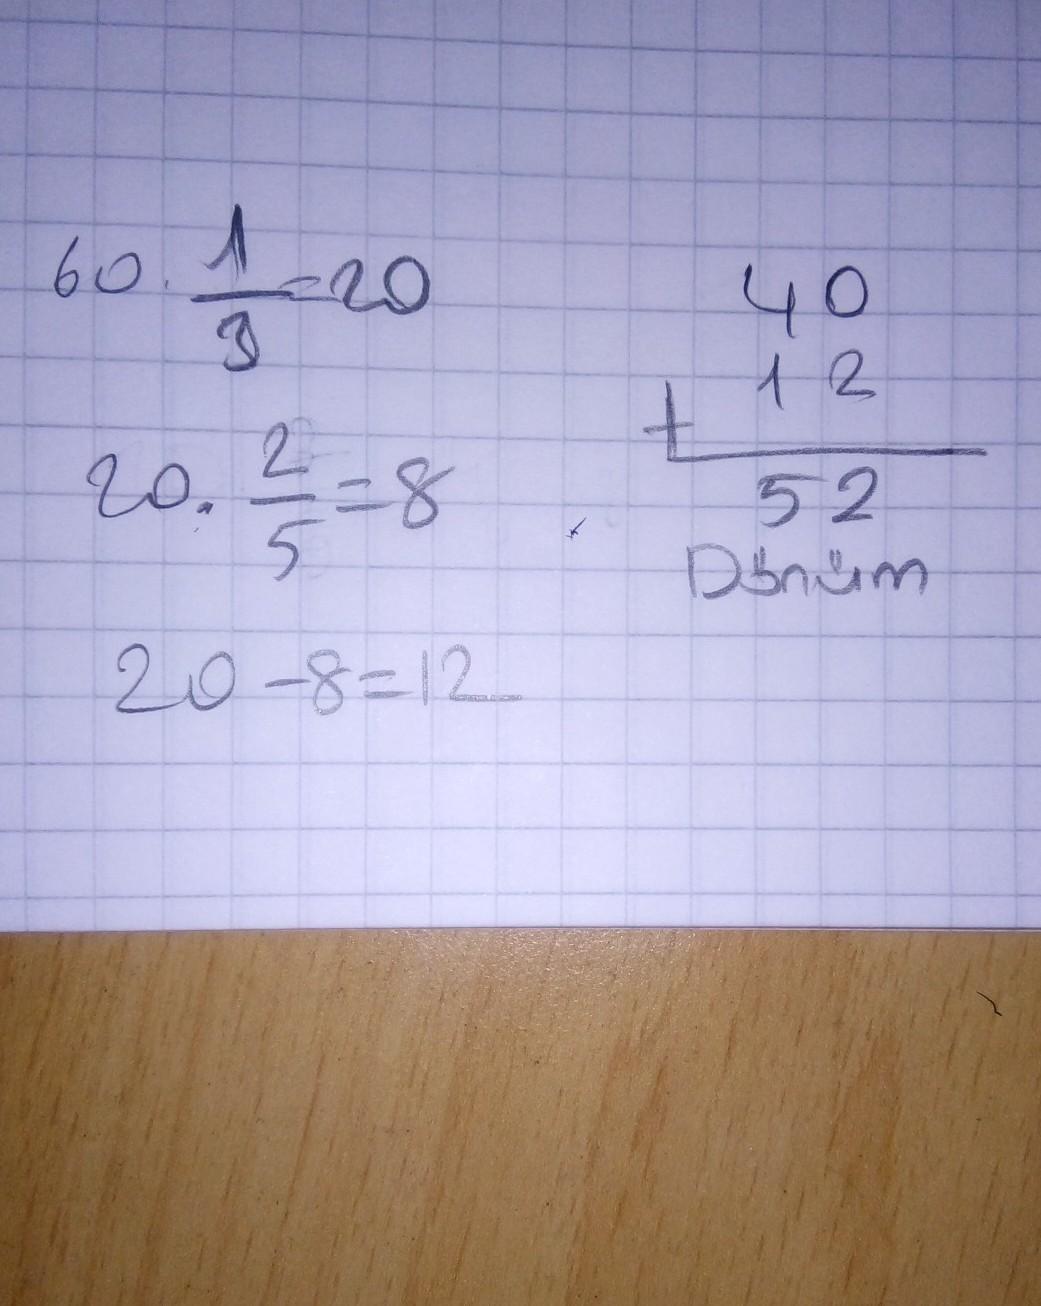 60 . 1/3 = 20
20 . 2/5 = 8
20 - 8 = 12
40
+ 12
52
Dönüm